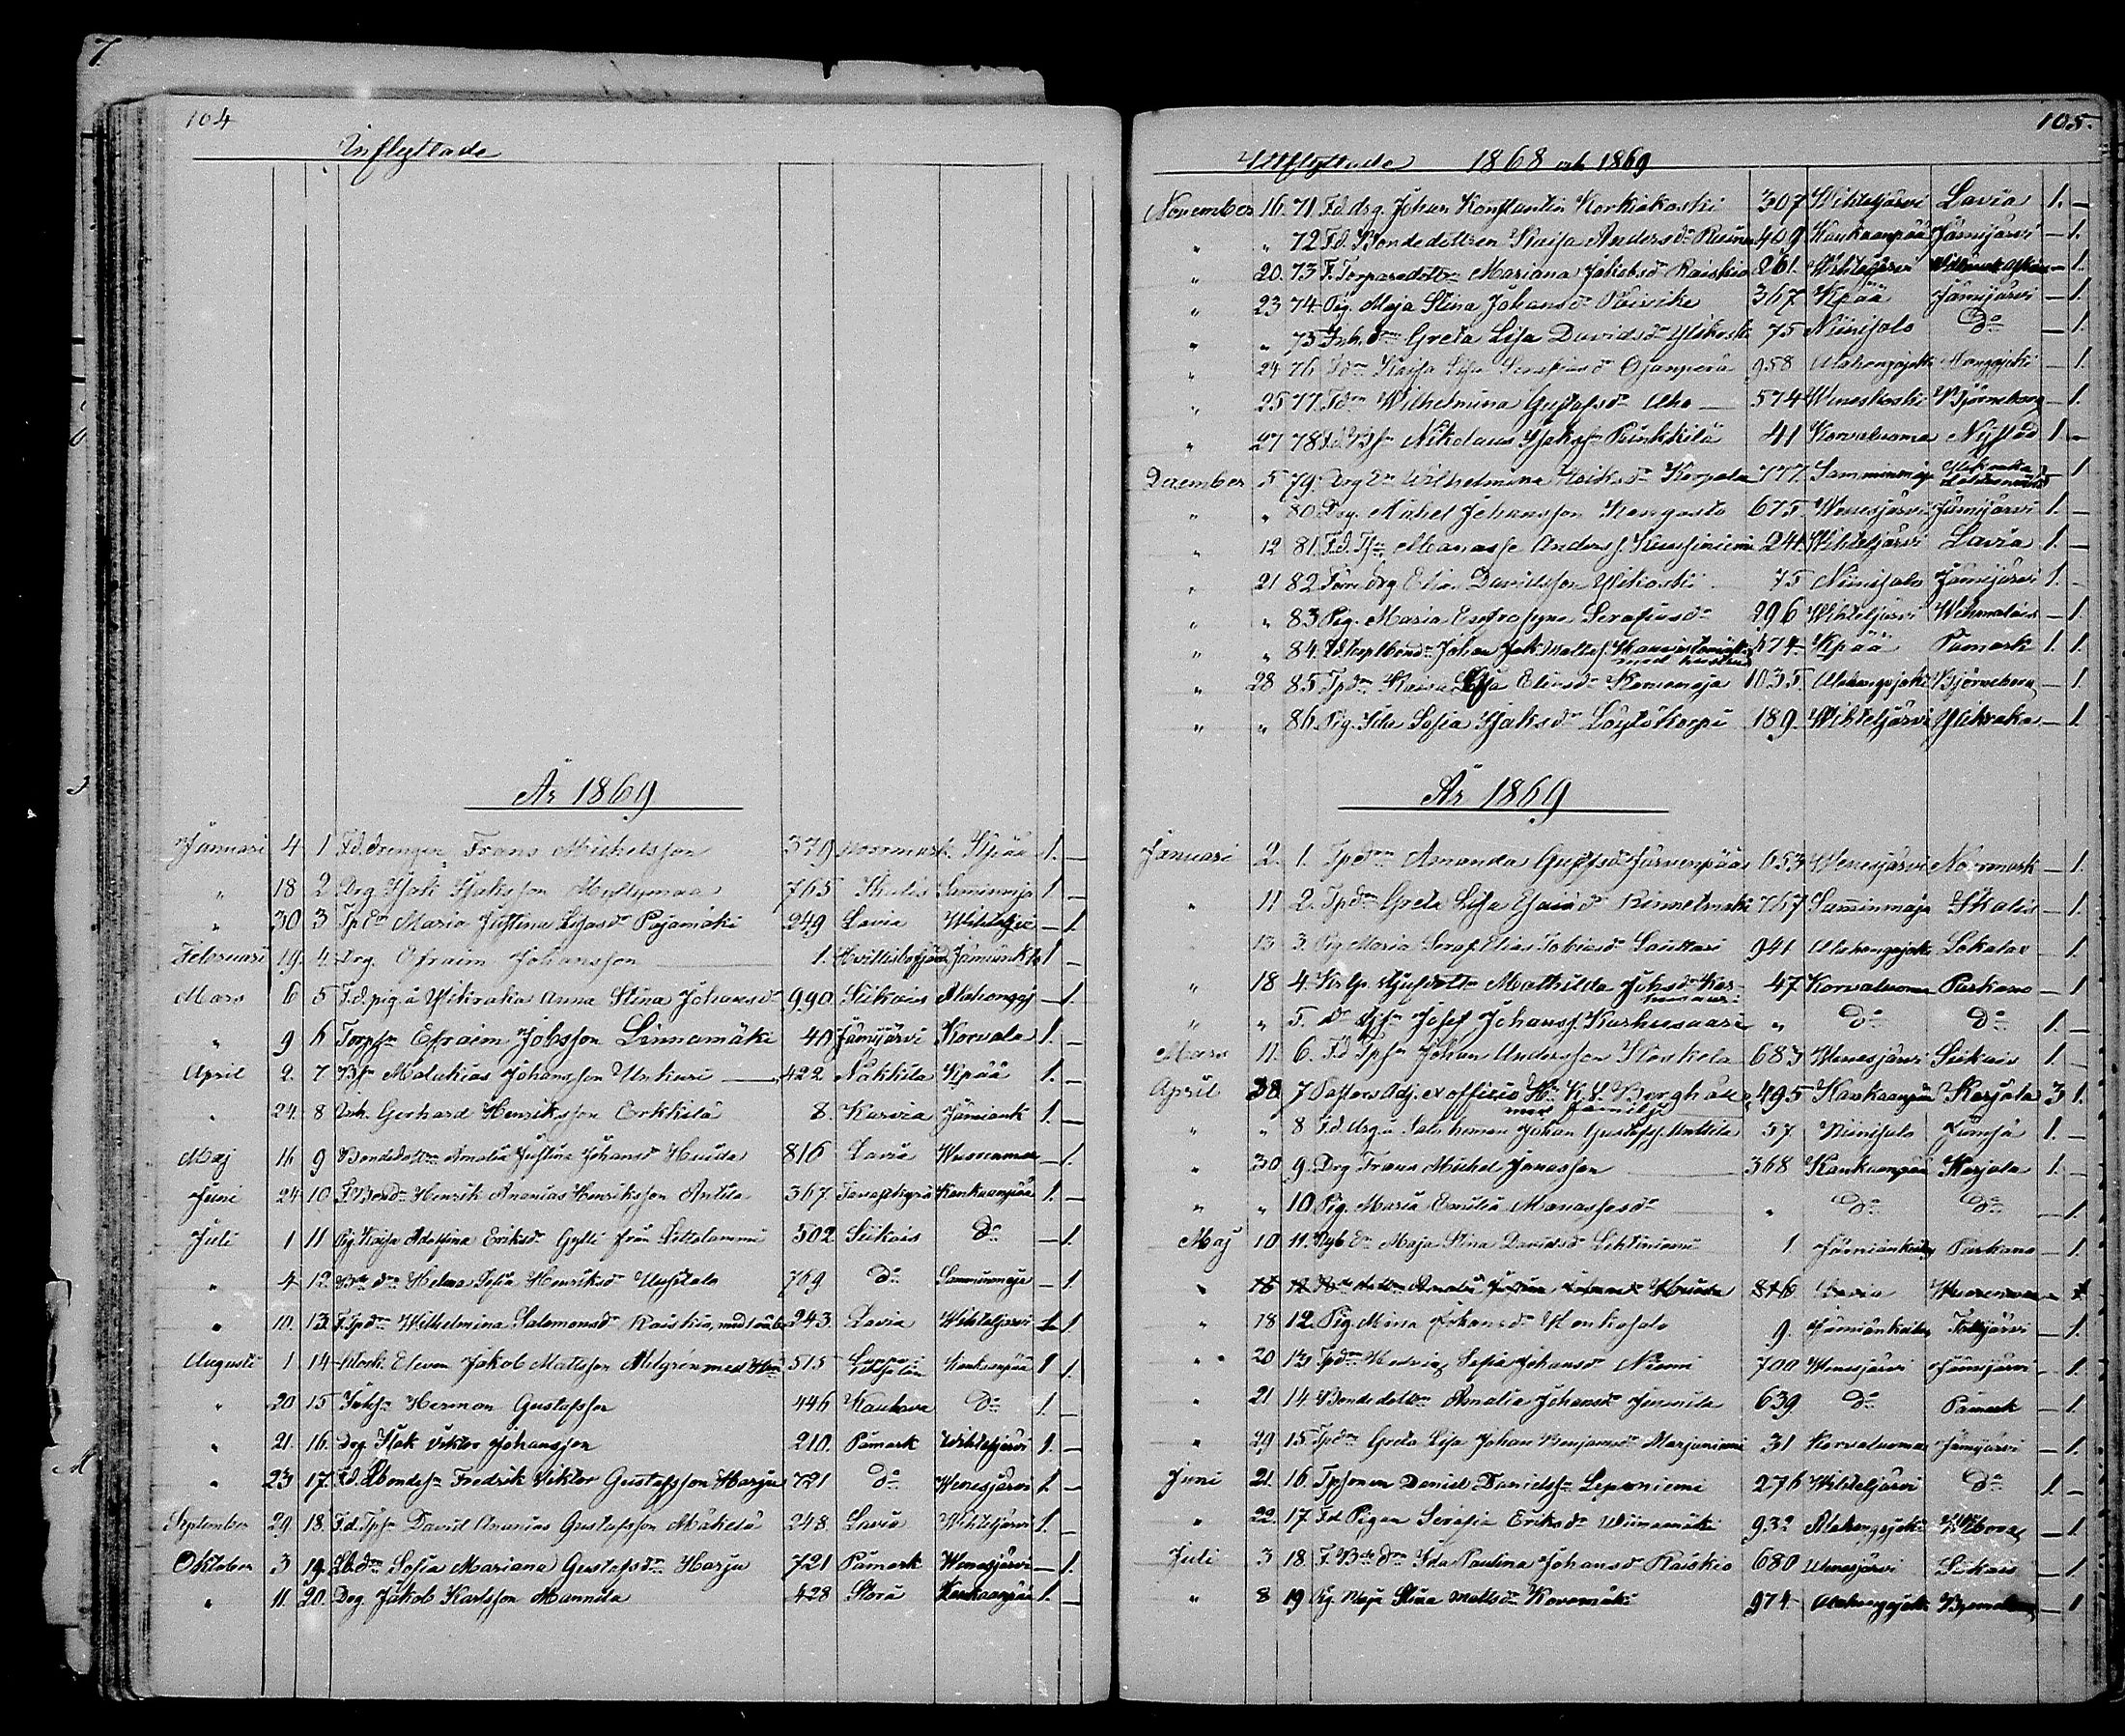 7
104
Inflyttade
År 1869
Januari 4 1 F.d. drengen Frans Michelsson 379 Norrmark Kpää 1. —
" 18 2 Drg Isak Isaksson Myllymaa 765 Skulis Samminmaja 1 —
" 30 3 Tpdr Maria Justina Esasdr Pajamäki 249 Lavia Wihteljr — 1.
Februari 19. 4. Drg. Efraim Johansson 1. Hvittisbofjärd Jämiänk 1 —
Mars 6 5 F.d. pig. å Ylikraka Anna Stina Johansdr 990 Siikais Alahongoj — 1.
" 9 6 Torpsn Efraim Johsson Linnamäki 40 Jämijärvi Korvala 1. —
April 2. 7 Bsn Malakias Johansson Unkuri 422 Nakkila Kpää 1. —
" 24. 8 Inh. Gerhard Henriksson Erkkilä 8. Karvia Jämiänk 1. —
Maj 16 9 Bondedottrn Amalia Justina Johansdr Huida 816 Lavia — 1.
Juni 24 10 F. Bondn Henrik Ananias Henriksson Antila 367 Tavastkyrö Kankaanpää 1. —
Juli 1 11 Pig. Kajsa Adolfina Eriksdr Gylli från 502 Siikais Do — 1.
" 4 12 dr Helma Sofia Henriksdr Uusitalo 769 Do Samminmaja — 1.
" 10. 13. F. Tpdr Wilhelmina Salomonsdr Raiskio, med 243. Lavia Wihteljärvi 1 1.
Augusti 1 14 Eleven Jakob Mattsson med 515 Lappo Kankaanpää 1 1.
" 20 15 Herman Gustafsson 446 Kauhava Do 1. —
" 21. 16. Drg. Isak Viktor Johansson 210. Påmark Wihteljärvi 1. —
" 23 17. F.d. Bondesn Fredrik Viktor Gustafsson Harju 721 Do Wenesjärvi 1. —
September 29 18. F.d. Tpsn David Ananias Gustafsson Mäkelä 248. Lavia Wihteljärvi 1. —
Oktober 3 19 Bdr Sofia Mariana Gustafsdr Harju 721 Påmark Wenesjärvi — 1.
" 11. 20. Drg Jakob Karlsson Mannila 428 Storå Kankaanpää 1. —
105.
Utflyttade 1868 och 1869
November 16. 71. F.d. drg. Johan Konstantin Korkiakoski 307 Wihteljärvi Lavia 1. —
" " 72 F.d. Bondedottren Kaisa Andersdr 409 Kankaanpää Jämijärvi — 1.
" 20. 73 F. Torparedottr Mariana Jakobsdr Raiskio 261. Wihteljärvi — 1.
" 23 74 Pig. Maja Stina Johansdr 367 Kpää Jämijärvi — 1.
" " 75 Inh. dr Greta Lisa Davidsdr Ylikoski 75 Niinisalo Do — 1.
" 24 76 Kajsa Lisa Serafiasdr Ojanperä 958 Alahongojoki Hongojoki — 1.
" 25 77. Wilhelmina Gustafsdr Aho 574 Weneskoski Björneborg — 1.
" 27 78 F.d. Bsn Nikolaus Isaksson Punkkila 41 Korvaluoma Nystad 1. —
December 5 79. Wilhelmina Korpela 777. Samminmaja — 1
" " 80. Drg. Mikel Johansson Kangasto 675 Wenesjärvi Jämijärvi 1. —
" 12 81. F.d. Tpsn Manasse Anderss. Kuusiniemi 241. Wihteljärvi Lavia 1. —
" 21 82 drg Elias Davidsson Ylikoski 75 Niinisalo Jämijärvi 1. —
" " 83 Pig. Maria Eufrosyne Serafiasdr 296 Wihteljärvi — 1.
" " 84. Johan Jak. Mattss. med hustru 474 Kpää Påmark 1. 1.
" 28 85 Tpdr Kaisa Lisa Eliasdr Komomaja 1035 Alahongojoki Björneborg — 1.
" " 86 Pig. Ida Sofia Isaksdr Löytökorpi 189. Wihteljärvi Ylikraka — 1
År 1869
Januari 2. 1. Tpdr Amanda Gustfsdr Järvenpää 653 Wenesjärvi Norrmark — 1.
" 11 2. Tpdr Greta Lisa Esaiadr 767 Samminmaja Skulis — 1.
13 3. Pig Maria Seraf. Elias Tobiasdr Sauttari 941 Alahongojoki Lokalax — 1.
" 18 4. Mathilda Johsdr Karhusaari 47 Korvaluoma Parkano — 1
" " 5. Do Josef Johanss. Karhusaari " Do Do 1. —
Mars 11. 6. F.d. Tpsn Johan Andersson Koskela 683 Wenesjärvi Siikais 1. —
April 28 7 Pastors Adj. ex officio Hr K. S. Bergh med familj 495 Kankaanpää Karjala 3 1.
" " 8 F.d. drg å Salohonen Johan Gustafss. Anttila 57 Niinisalo Jämsä 1. —
" 30 9. Drg Frans Michel Jonasson 368 Kankaanpää Karjala 1. —
" " 10. Pig. Maria Emilia Manassesdr " Do Do — 1.
Maj 10 11. Maja Stina Davidsdr Lehtiniemi 1 Jämiänkeidas Parkano — 1
" 16 12 Amalia Justina Huida 816 Lavia — 1
" 18 12. Pig Mina Johansdr Honkasalo 9. Jämiänkeidas — 1.
" 20 13 Tpdr Hedvig Sofia Johansdr Niemi 700 Wenesjärvi Jämijärvi — 1.
" 21 14 Bondedottrn Amalia Johansdr Jussila 639 Do Påmark — 1.
" 29 15 Tpdr Greta Lisa Johan Benjamsdr Marjuniemi 31 Korvaluoma Jämijärvi — 1.
Juni 21. 16. Tpsonen Daniel Danielsn Leponiemi 276 Wihteljärvi Do 1. —
" 22. 17 F.d. Pigan Serafia Eriksdr Wiinamäki 932 Alahongojoki — 1.
Juli 3 18 F. Bdr Ida Paulina Johansdr Raiskio 680 Wenesjärvi Siikais — 1
" 8 19 Pig. Maja Stina Mattsdr Kovomäki 974 Alahongojoki — 1